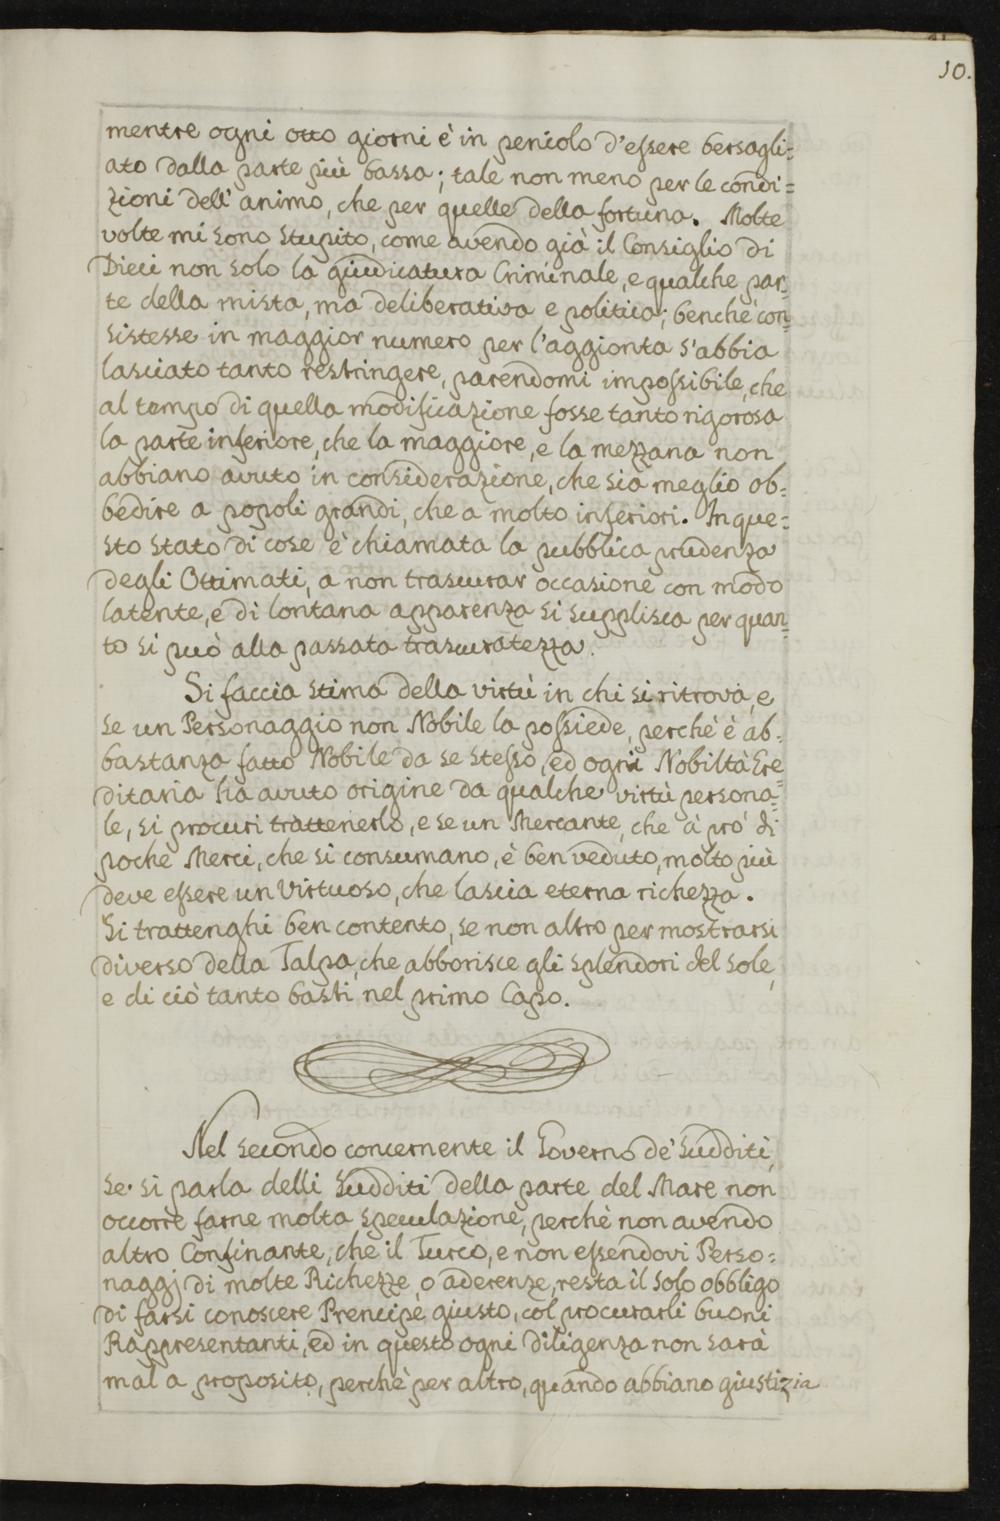 10.
mentre ogni otto giorni è in pericolo d'essere bersagli=
ato dalla parte più bassa; tale non meno per le condi=
zioni dell'animo, che per quelle della fortuna. Molte
volte mi sono stupito, come avendo già il Consiglio di
Dieci non solo la giudicatura Criminale, e qualche par=
te della mista, ma deliberativa e politica; benchè con=
sistesse in maggior numero per l'aggionta s'abbia
lasciato tanto restringere, parendomi impossibile, che
al tempo di quella modificazione fosse tanto rigorosa
la parte inferiore, che la maggiore, e la mezzana non
abbiano avuto in considerazione, che sia meglio ob=
bedire a popoli grandi, che a molto inferiori. In que=
sto stato di cose è chiamata la pubblica prudenza
degli Ottimati, a non trascurar occasione con modo
latente, e di lontana apparenza si supplisca per quan=
to si può alla passata trascuratezza.
Si faccia stima della virtù in chi si ritrova, e
se un Personaggio non Nobile la possiede, perchè è ab=
bastanza fatto Nobile da se stesso, ed ogni Nobiltà Ere
ditaria ha avuto origine da qualche virtù persona=
le, si procuri trattenerlo, e se un Mercante, che à prò di
poche Merci, che si consumano, è ben veduto, molto più
deve essere un Virtuoso, che lascia eterna richezza.
Si trattenghi ben contento, se non altro per mostrarsi
diverso della Talpa, che abborisce gli splendori del sole,
e di ciò tanto basti nel primo Capo.
Nel secondo concernente il Governo de' Sudditi,
se si parla delli Sudditi della parte del Mare non
occorre farne molta speculazione, perchè non avendo
altro Confinante, che il Turco, e non essendovi Perso=
naggj di molte Richezze, o aderenze, resta il solo obbligo
di farsi conoscere Prencipe giusto, col procurarli buoni
Rappresentanti, ed in questo ogni diligenza non sarà
mal a proposito, perchè per altro, quando abbiano giustizia